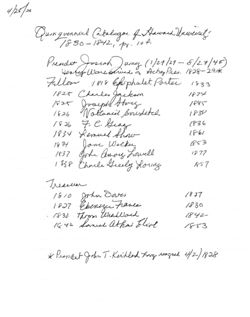 4/25/10
Quinquennial Catalogue of Harvard University:
1830-1842, pp. 10 ff.
President Josiah Quincy
Henry Ware served as Acting Pres. 1828-29*
Fellows 1818 Eliphalet Porter 1833
1825 Charles Jackson 1834
1825 Joseph Story 1845
1826 Nathaniel Bowditch 1838
1826 F. C. Gray 1836
1834 Lemuel Shaw 1861
1834 James Walker 1853
1837 John Amory Lowell 1877
1838 Charles Greely Loring 1857
Treasurer
1810 John Davis 1827
1827 Ebenezer Francis 1830
1830 Thomas W. Ward 1842
1842 Samuel Atkins Eliot 1853
* President John T. Kirkland having resigned 4/2/1828